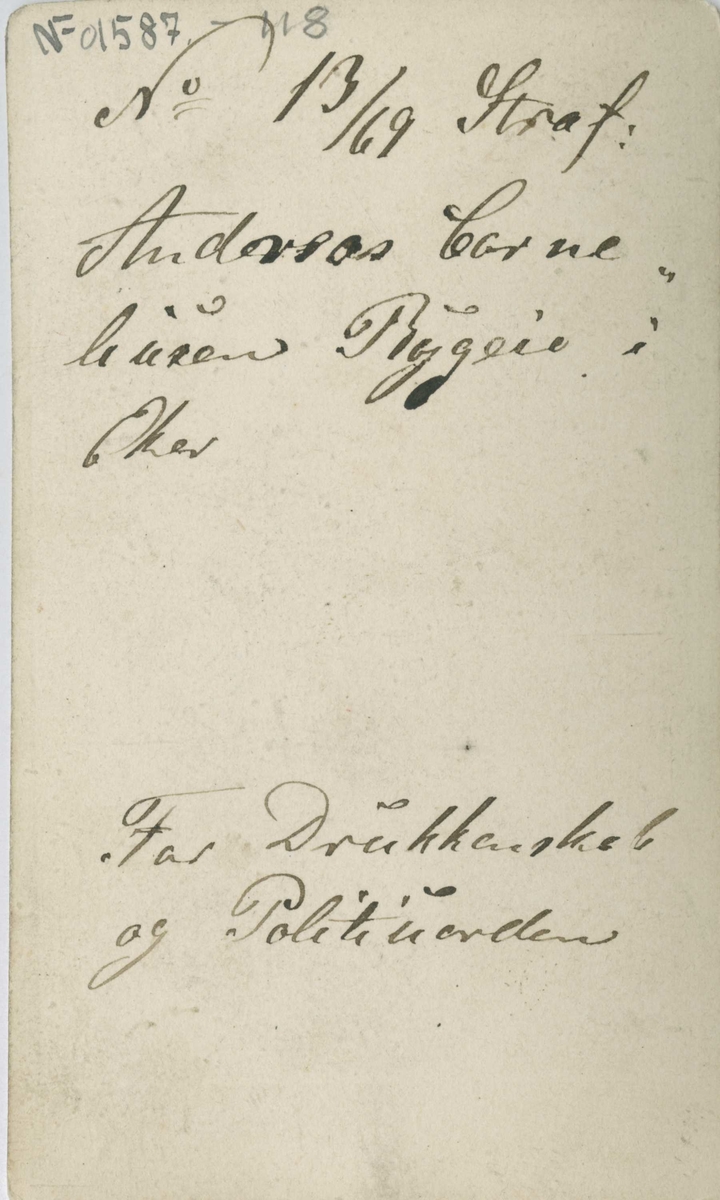 NF 01587 - 118
No 13/69 Straf:
Andreas Corne„
liusen Bygeie i
Eker
For Drukkenskab
og Politiuorden